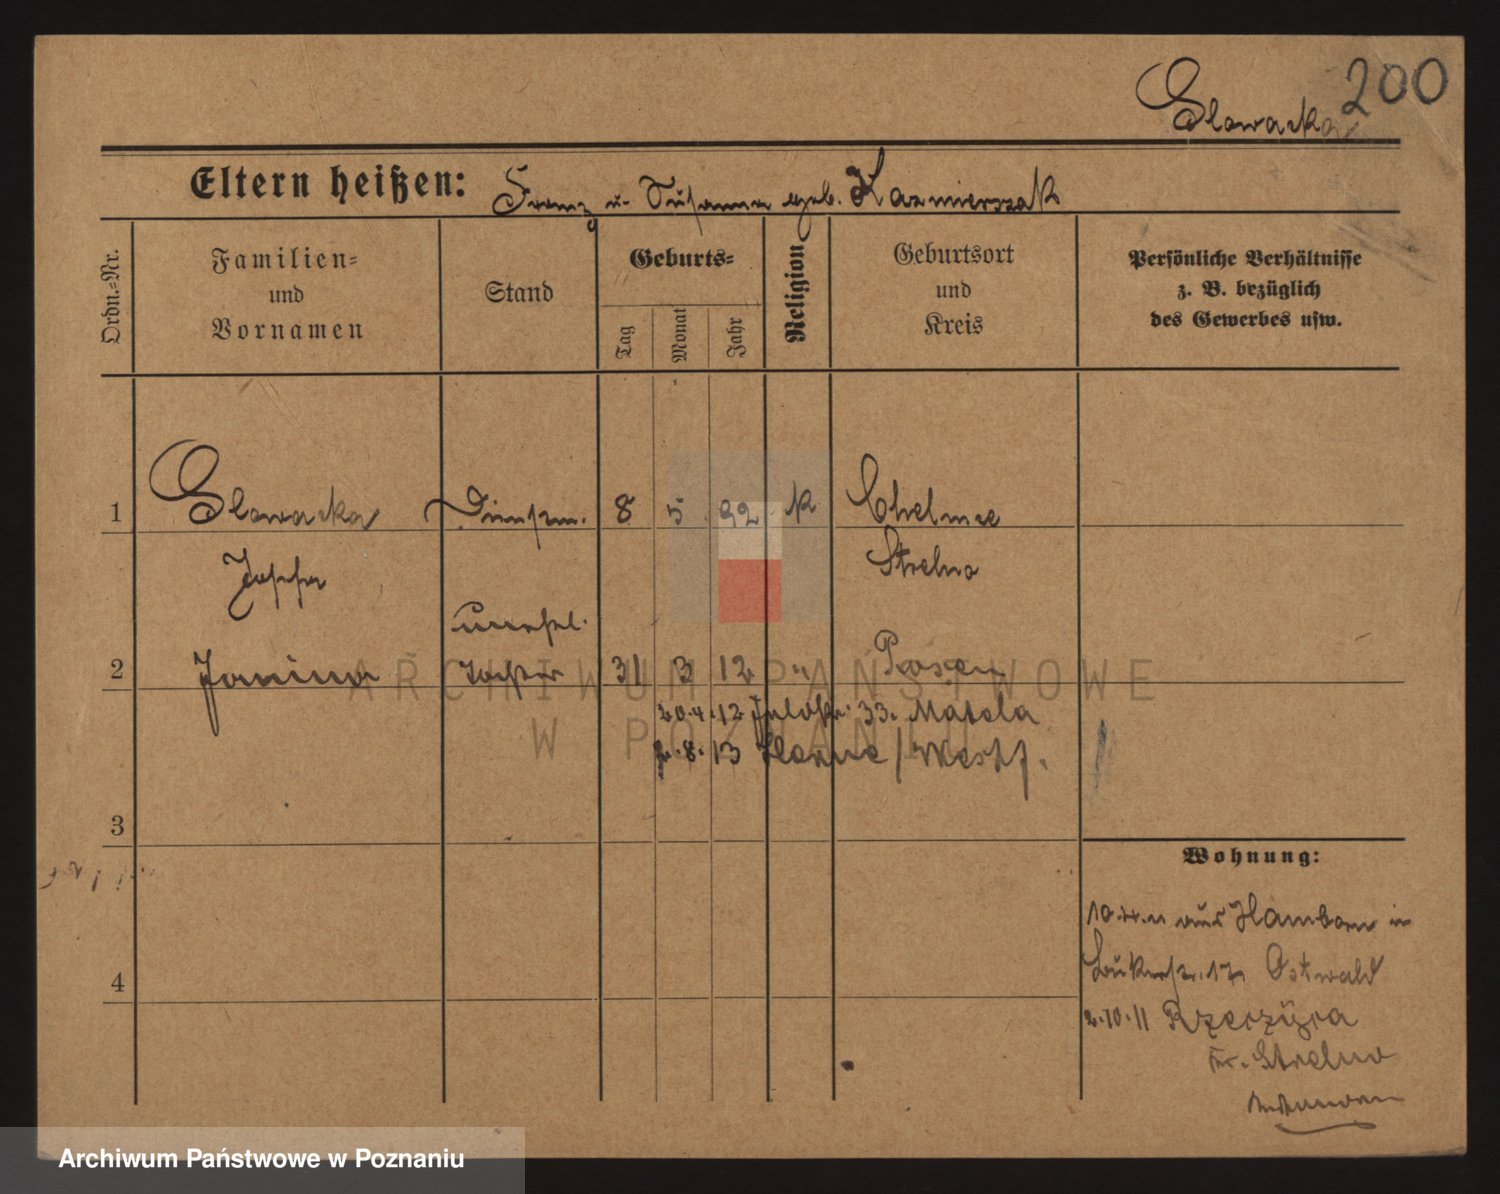 200
Slowacka
Eltern heißen: Franz u. Susanna geb. Kazmierszak
Ordn.=Nr.
Familien=
und
Vornamen
Stand
Geburts=
Tag
Monat
Jahr
Religion
Geburtsort
und
Kreis
Persönliche Verhältnisse
z. B. bezüglich
des Gewerbes usw.
1 Slowacka Dienstm. 8 5 92 k Chelmce
Josefa Strelno
unehel.
2 Janina Tochter 31 3 12 " Posen
20.4.12 33. Matela
8. 13 Herne / Westf.
3
Wohnung:
10. aus Hamborn in
17 Ostwald
2.10.11
Kr. Strelno
4
ARCHIWUM PAŃSTWOWE
W POZNANIU
Archiwum Państwowe w Poznaniu